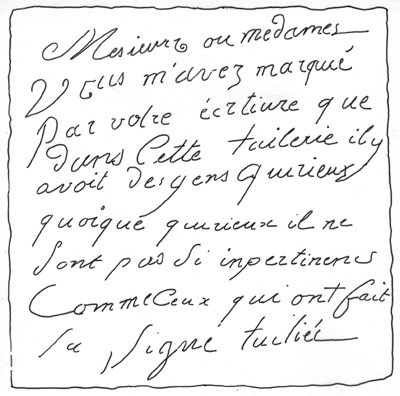 Mesieurs ou medames
Vous m'avez marqué
Par votre écrtiure que
Dans Cette tuilerie il y
avoit des gens Quirieux
quoique quirieux il ne
Sont pas Si inpertinens
Comme Ceux qui ont fait
La signé tuiliée